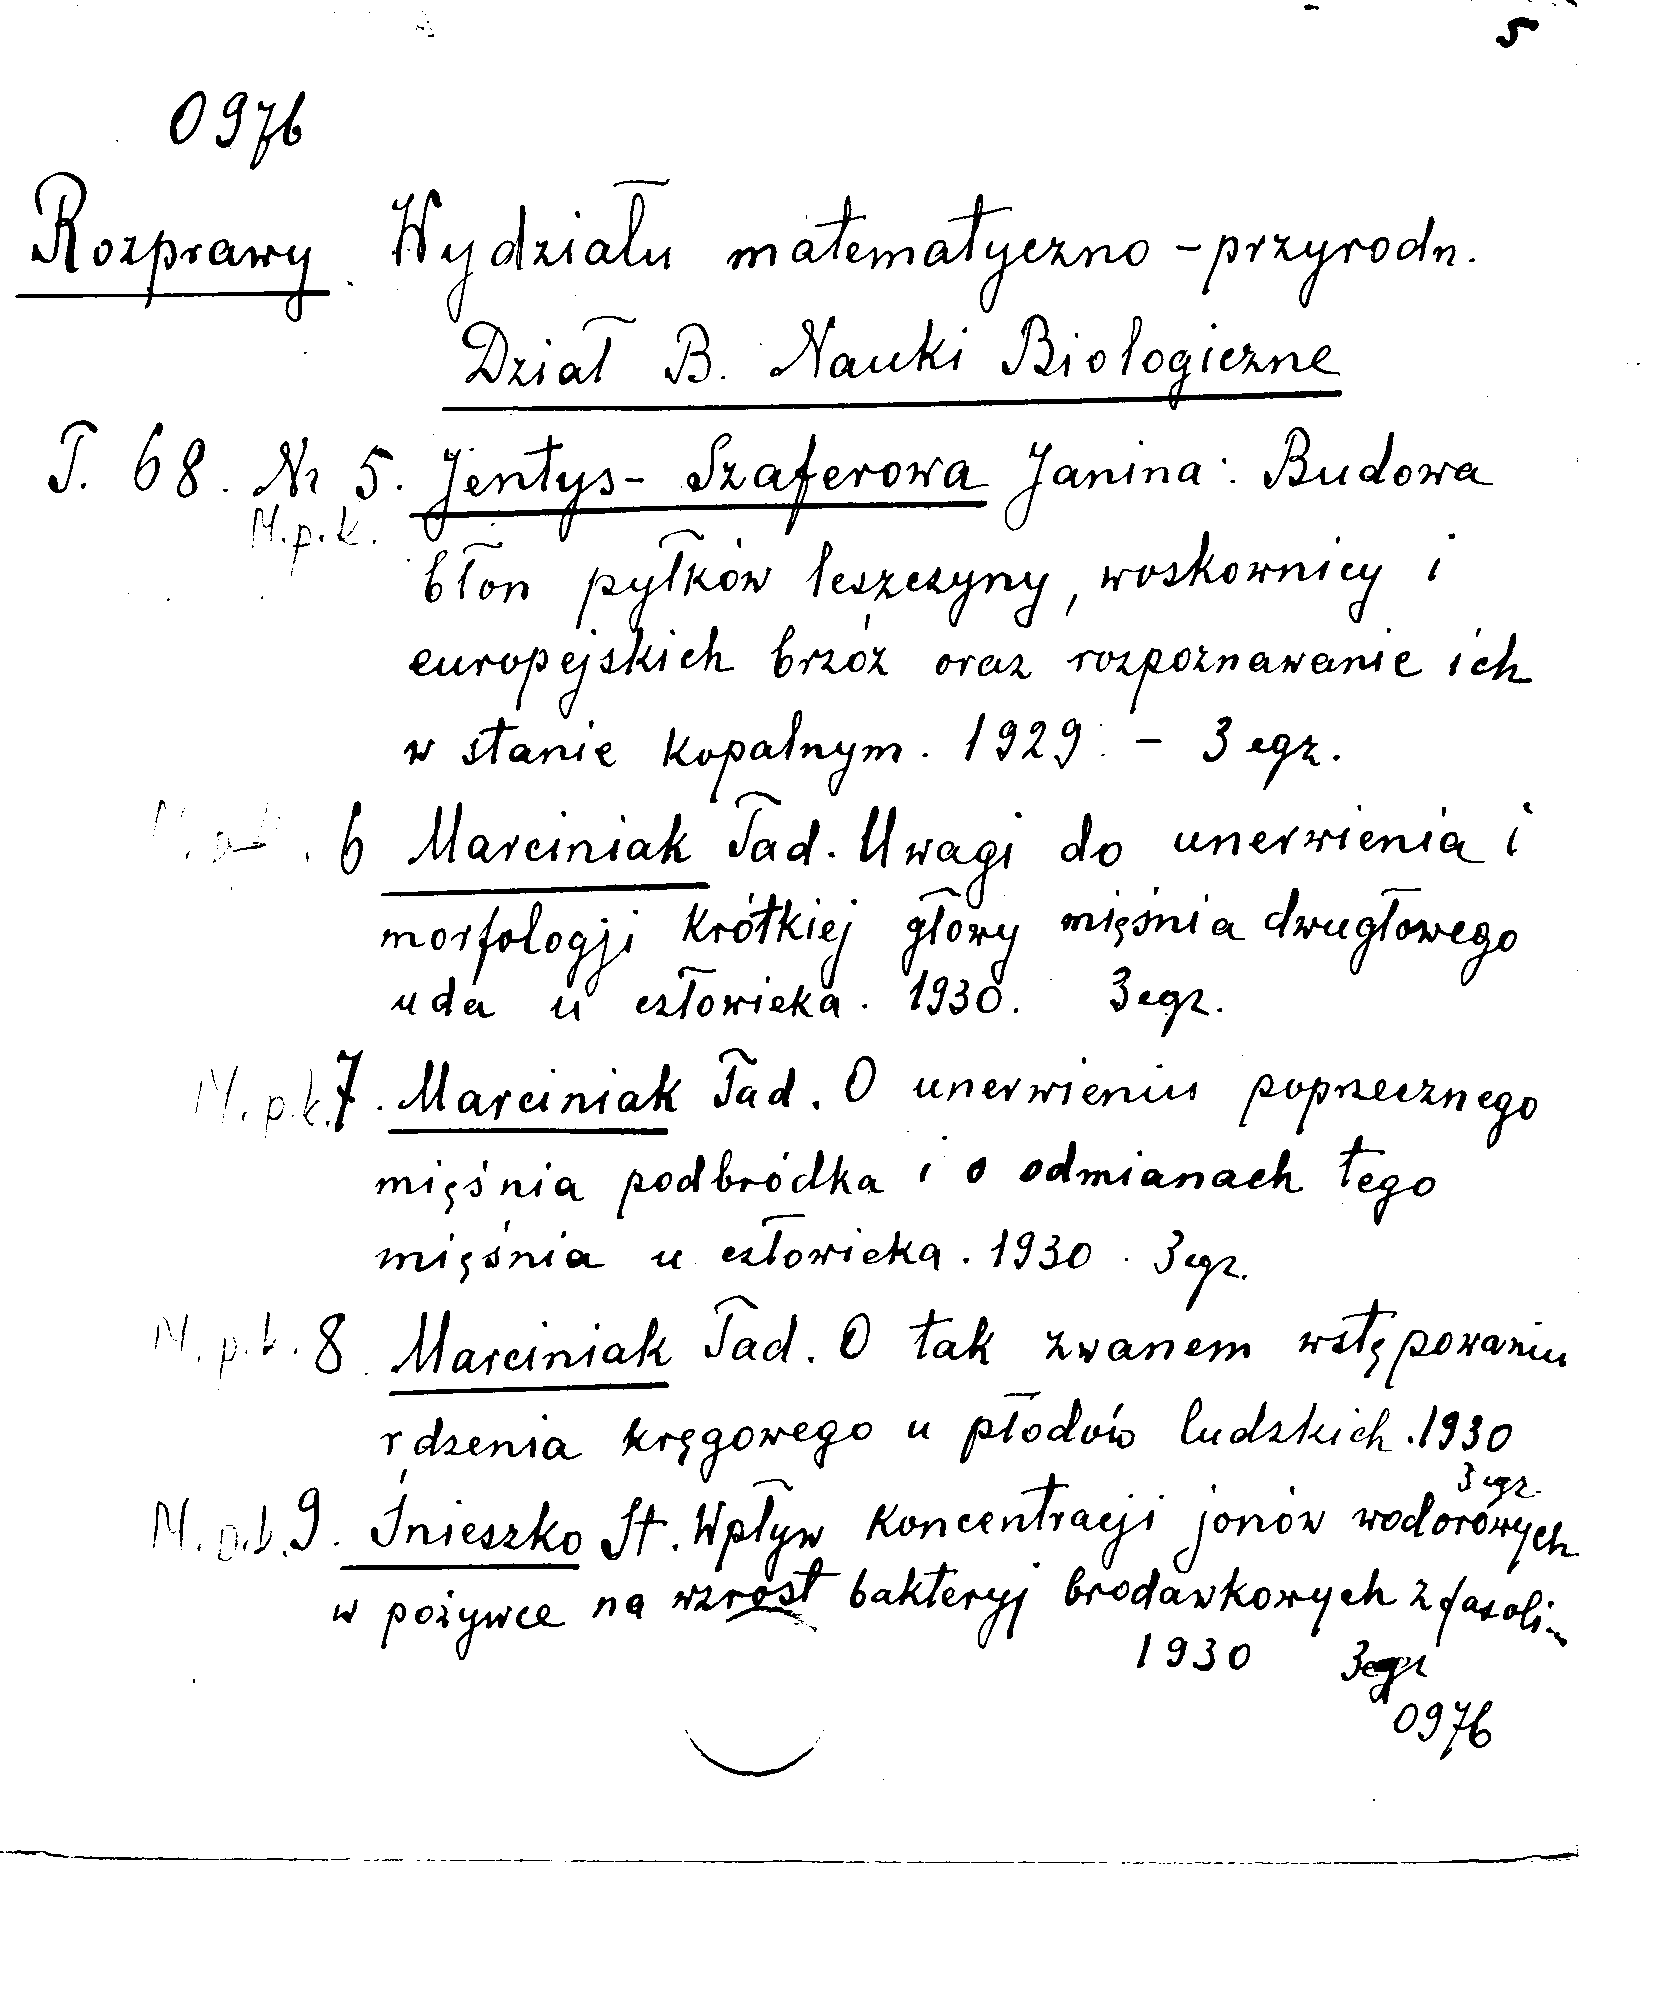 5
0976
Rozprawy Wydziału matematyczno-przyrodn.
Dział B. Nauki Biologiczne
T. 68. Nr 5. Jentys-Szaferowa Janina: Budowa
M.p.k.
błon pyłków leszczyny, woskownicy i
europejskich brzóz oraz rozpoznawanie ich
w stanie kopalnym. 1929. - 3 egz.
6 Marciniak Tad. Uwagi do unerwienia i
morfologji krótkiej głowy mięśnia dwugłowego
uda u człowieka. 1930. 3 egz.
M.p.k. 7. Marciniak Tad. O unerwieniu poprzecznego
mięśnia podbródka i o odmianach tego
mięśnia u człowieka. 1930. 3 egz.
M.p.k. 8. Marciniak Tad. O tak zwanem wstępowaniu
rdzenia kręgowego u płodów ludzkich. 1930
3 egz.
M.p.k. 9. Śnieszko St. Wpływ koncentracji jonów wodorowych
w pożywce na wzrost bakteryj brodawkowych z fasoli
1930 3 egz
0976